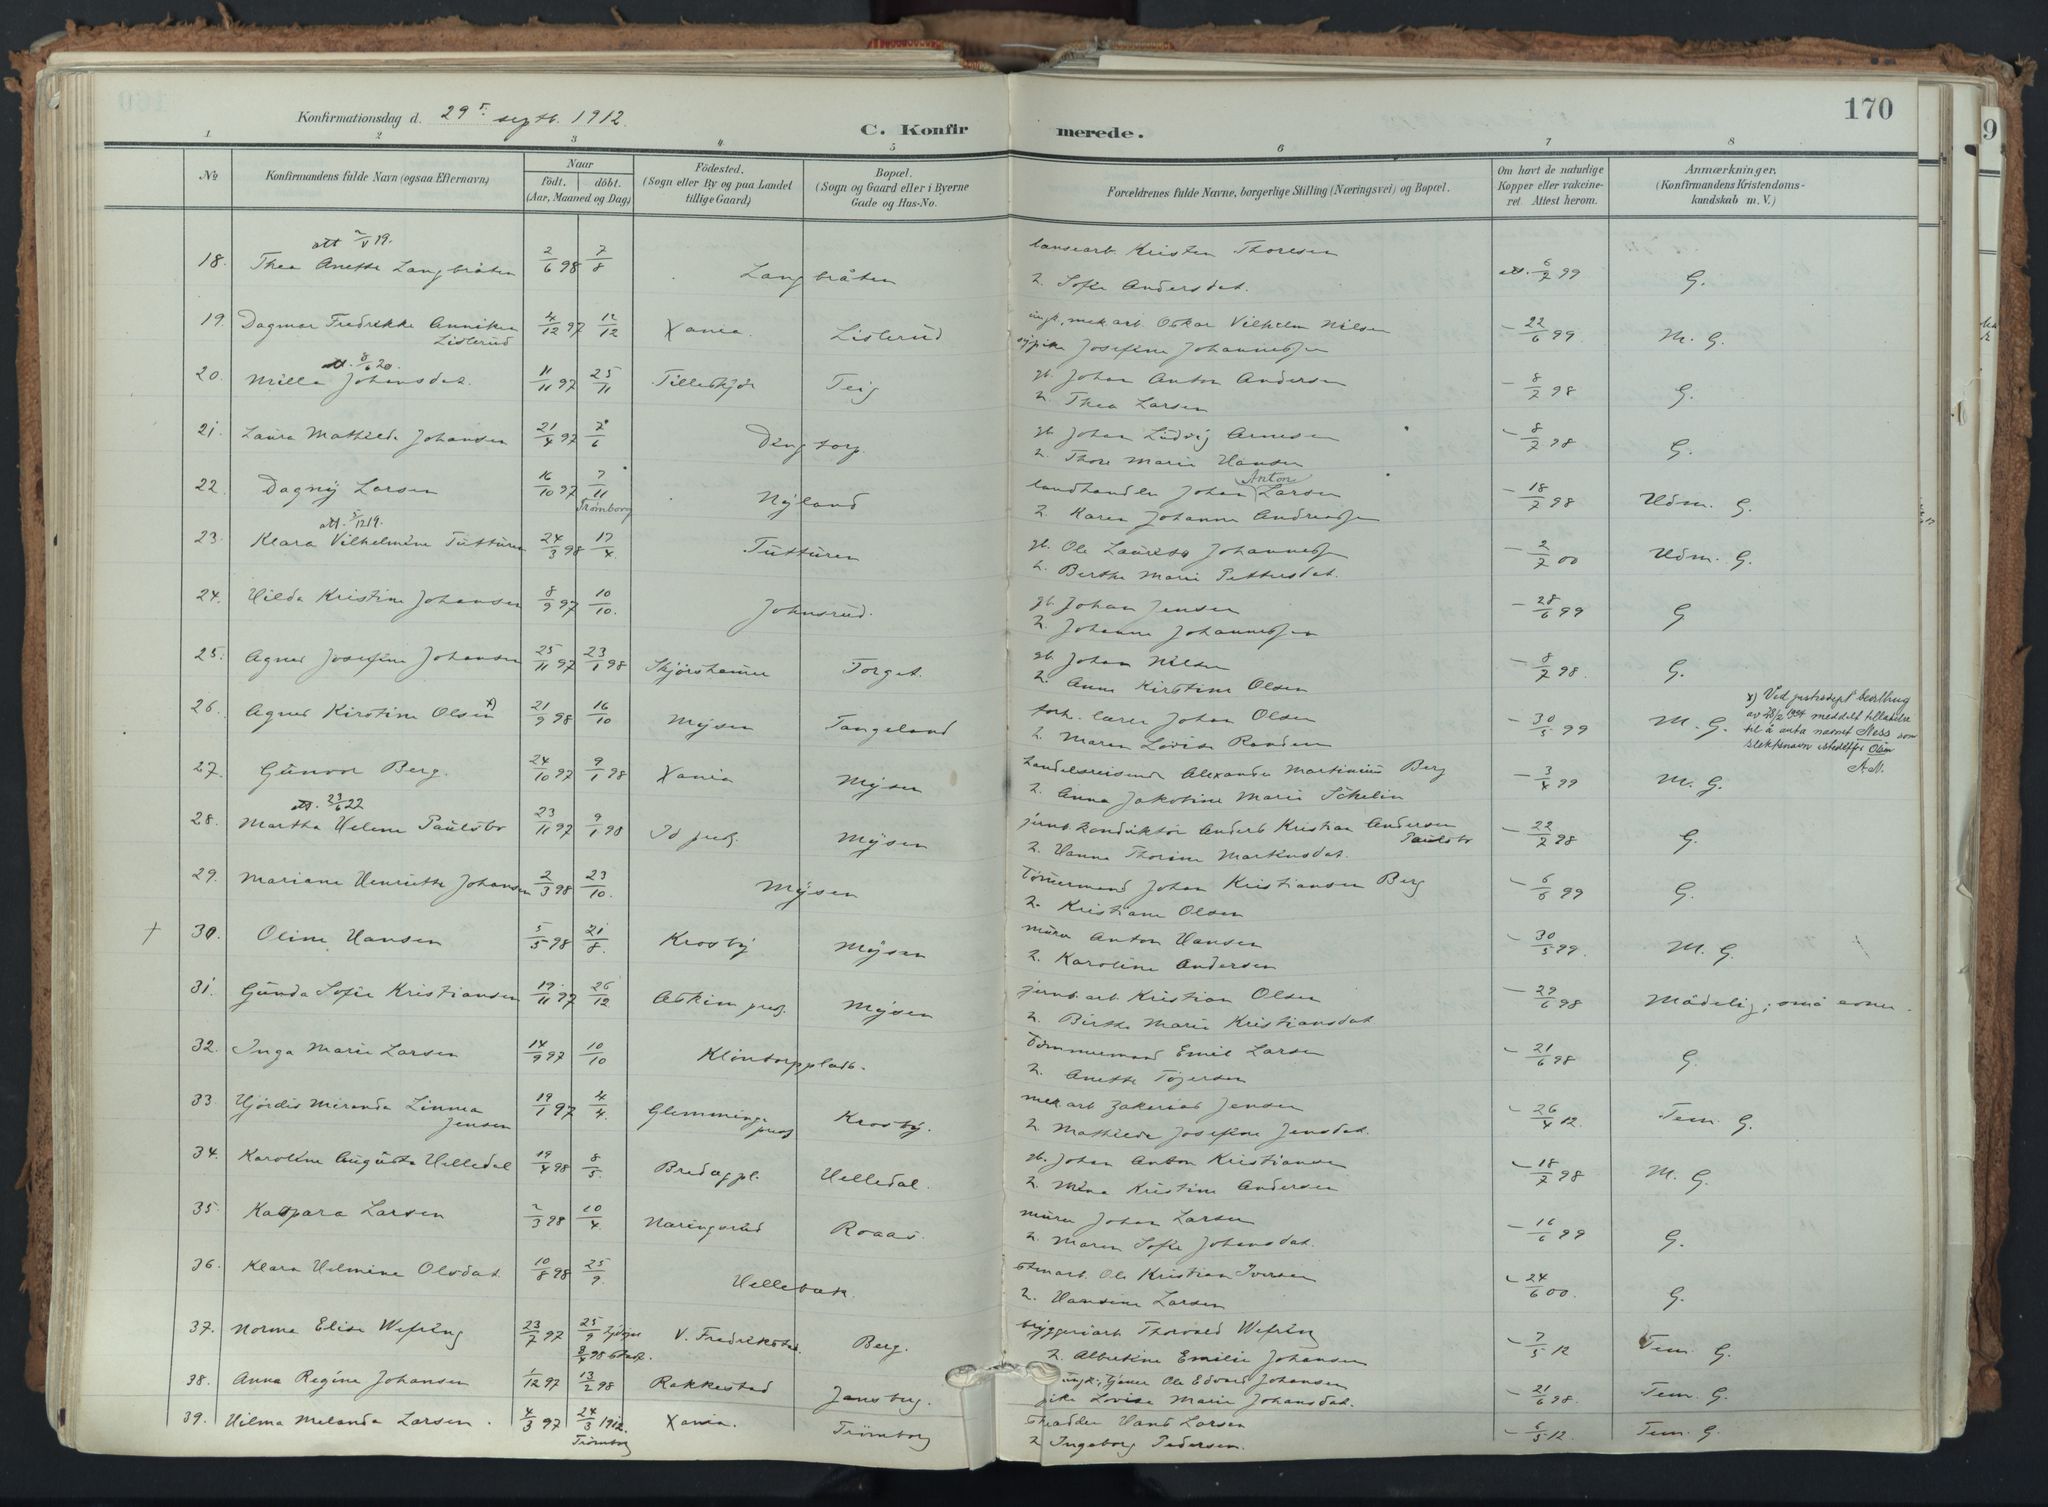 Konfirmationsdag d. 29 septb. 1912.
C. Konfirmerede.
170
1 2 3 4 5 6 7 8
No
Konfirmandens fulde Navn (ogsaa Efternavn)
Naar
födt. döbt.
(Aar, Maaned og Dag)
Födested.
(Sogn eller By og paa Landet
tillige Gaard)
Bopæl.
(Sogn og Gaard eller i Byerne
Gade og Hus-No.
Forældrenes fulde Navne, borgerlige Stilling (Næringsvei) og Bopæl.
Om havt de naturlige
Kopper eller vakcine-
ret Attest herom.
Anmærkninger,
(Konfirmandens Kristendoms-
kundskab m. V.)
att 2/5 19.
18. Thea Anette Langbråten 2/6 98 7/8 Langbråten Kristen Thoresen
2. Sofie Andersdat. att. 6/7 99 G.
19. Dagmar Fredrikke Anniken 4/12 97 12/12 Xania. Listerud ungk., mek arb. Oskar Vilhelm Nilsen
Listerud sypike Josefine Johannessen – 22/6 99 M. G.
att. 8/6 20.
20. Milla Johansdat. 11/11 97 25/11 Teig gb. Johan Anton Andersen
2. Thea Larsen – 8/7 98 G.
21. Laura Mathilde Johansen 21/4 97 7/6 Dingtorp gb. Johan Ludvig Arnesen
2. Thore Marie Hansen – 8/7 98 G.
22. Dagny Larsen 16/10 97 7/11 Trømborg Nyland landhandler Johan Anton Larsen
2. Karen Johanne Andreassen – 18/7 98 Udm. G.
att. 5/12 19.
23. Klara Vilhelmine Tutturen 24/3 98 17/4 Tutturen gb. Ole Laurits Johannessen
2. Berthe Marie Pettersdat. – 2/7 00 Udm. G.
24. Hilda Kristine Johansen 8/9 97 10/10. Johnsrud. gb. Johan Jensen
2. Johanne Johannessen – 28/6 99 G
25. Agnes Josefine Johansen 25/11 97 23/1 98 Skjørshammer Torget. gb. Johan Nilsen
2. Anne Kirstine Olsen – 8/7 98 G.
26. Agnes Kirstine Olsen x) 21/9 98 16/10 Mysen Tangeland forh. lærer Johan Olsen
2. Maren Lovise Randem – 30/5 99 M. G.
x) Ved justisdept bevilling
av 28/2 1924 meddelt tillatelse
til å anta navnet Ness som
slektsnavn istedetfor Olsen
A.N.
27. Gunvor Berg. 24/10 97 9/1 98 Xania Mysen handelsreisende Alexander Martinius Berg
2. Anna Jakobine Marie Schelin – 3/4 99 M. G.
att. 23/6 22
28. Martha Helene Paulsbo 23/11 97 9/1 98 Id prgj. Mysen jernb. konduktør Anders Kristian Andersen
Paulsbo
2. Hanne Thorine Markusdat. – 22/7 98 G.
29. Mariane Henriette Johansen 2/3 98 23/10. Mysen Tømmermand Johan Kristiansen Berg
2. Kristiane Olsen – 6/6 99 G.
† 30. Oline Hansen 5/5 98 21/8. Krosby Mysen murer Anton Hansen
2. Karoline Andersen – 30/5 99. M. G.
31. Gunda Sofie Kristiansen 19/11 97 26/12 Askim prgj. Mysen jernb. arb. Kristian Olsen
2. Birthe Marie Kristiansdat – 29/6 98 Mådelig; små evner.
32. Inga Marie Larsen 14/9 97 10/10 Tømmermand Emil Larsen
2. Anette Tøgersen – 21/6 98 G.
33. Hjørdis Miranda Linnea 19/1 97 4/4. Glemminge Krosby. mek arb Zakarias Jensen
Jensen prgj
2. Mathilde Josefine Jensdat. – 26/4 12. Tem. G.
34. Karoline Augusta Helledal 19/4 98 8/5. Helledal. gb. Johan Anton Kristiansen
2. Mina Kristine Andersen – 18/7 98 M. G.
35. Kaspara Larsen 2/3 98 10/4 Næringsrud Roaas. murer Johan Larsen
2. Maren Sofie Johansdat. – 16/6 99 G.
36. Klara Helmine Olsdat. 10/8 98 25/9. Hellebæk. stenarb. Ole Kristian Iversen
2. Hansine Larsen – 24/6 00. G.
37. Norma Elise Wefring 23/7 97 25/9 8/4 98 V. Fredrikstad. Berg. bryggeriarb. Thorvald Wefring
2. Albertine Emilie Johansen – 7/5 12 Tem. G.
38. Anna Regine Johansen 1/12 97 13/2 98 Rakkestad Jansberg. ungk., tjener Ole Edvard Johansen
pike Lovise Marie Johansdat. – 21/6 98. Tem. G.
39. Hilma Melanda Larsen. 4/3 97 24/3 1912. Trømborg Xania. Trømborg skrædder Hans Larsen
2 Ingeborg Pedersen. – 6/5 12. Tem. G.